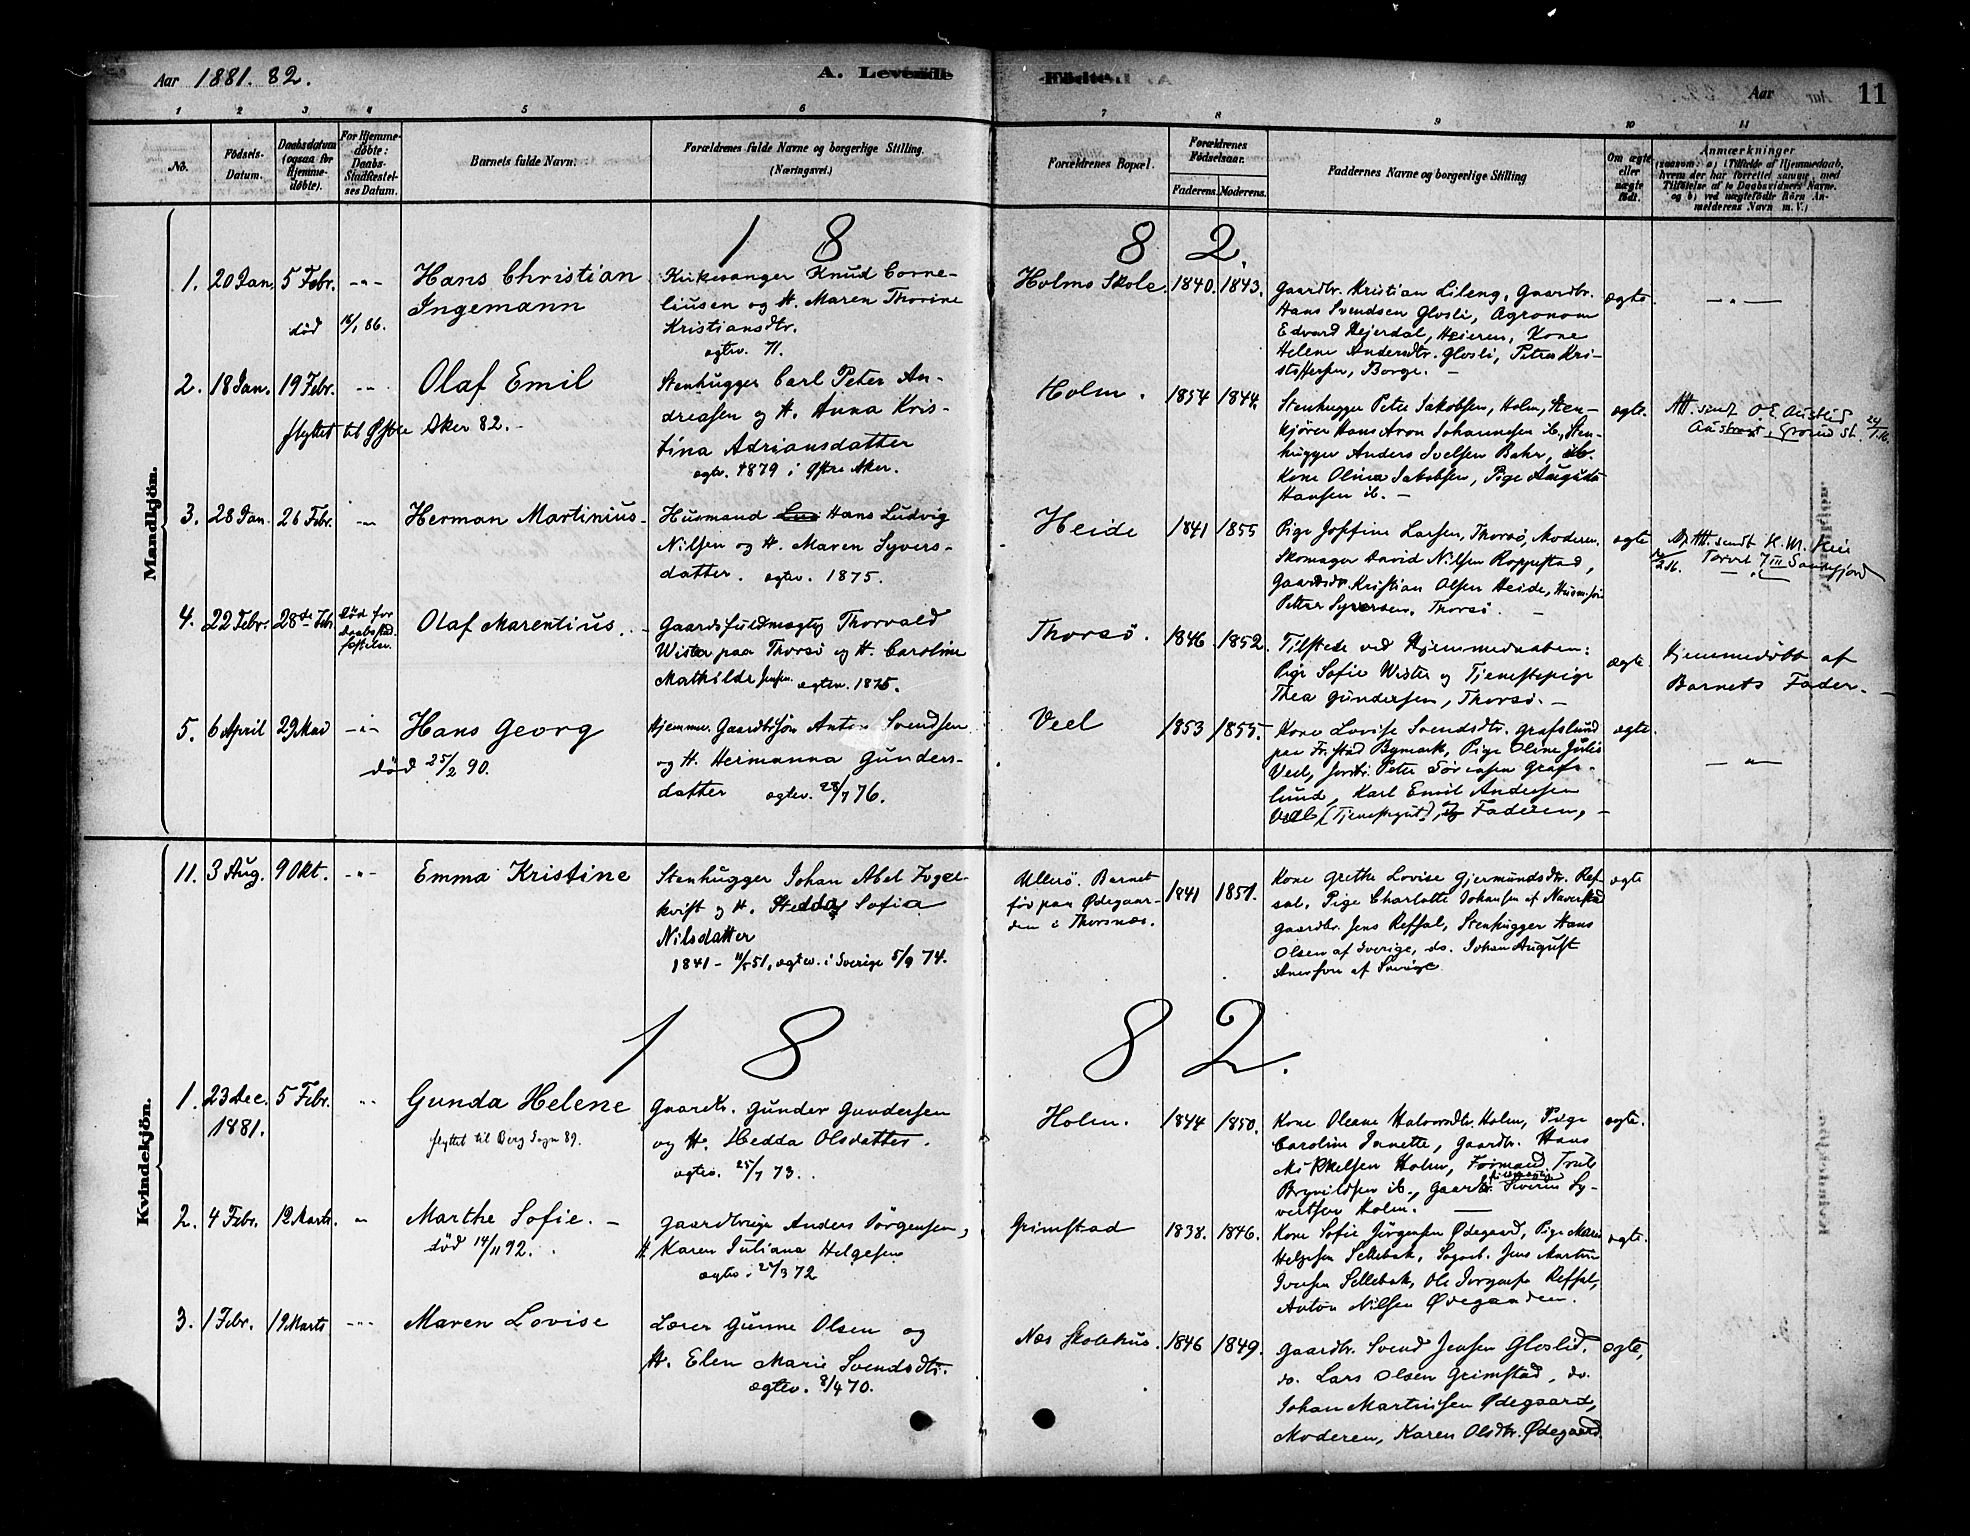 Aar 1881. 82.
A. Levende Fødte.
Aar
11
1 2 3 4 5 6 7 8 9 10 11
No.
Fødsels-Datum.
Daabsdatum (ogsaa for Hjemmedøbte).
For Hjemmedøbte: Daabs-Stadfæstelses Datum.
Barnets fulde Navn.
Forældrenes fulde Navne og borgerlige Stilling.
(Næringsvei.)
Forældrenes Bopæl.
Forældrenes Fødselsaar.
Faderens. Moderens.
Faddernes Navne og borgerlige Stilling
Om ægte eller uægte født.
Anmærkninger
(saasom: a) i Tilfælde af Hjemmedaab,
hvem der har forrettet samme, med
Tilføielse af to Daabsvidners Navne,
og b) ved uægtefødte Børn Anmelderens Navn m. V.)
Mandkjøn.
1 8 8 2.
1. 20 Jan. 5 Febr. -"- Hans Christian
Ingemann
død 18/1 86.
Kirkesanger Knud Corne-
liusen og H. Maren Thorine
Kristiansdtr.
egtev. 71.
Holms Skole. 1840. 1843.
Gaardbr. Kristian Lileng, Gaardbr.
Hans Svendsen Glosli, Agronom
Edvard Hejerdal, Heieren, Kone
Helene Andersdtr. Glosli, Peter Kri-
stoffersen, Borge. -
ægte. -"-
2. 18 Jan. 19 Febr. -"- Olaf Emil
flyttet til Østre Aker 82. -
Stenhugger Carl Peter An-
dreasen og H. Anna Kris-
tina Adriansdatter
egtv. 1879 i Østre Aker.
Holm. 1854 1844.
Stenhugger Peter Jakobsen, Holm, Sten-
kjører Hans Aron Johannesen ib., Sten-
hugger Anders Joelsen Bahr, ib.
Kone Olina Jakobsen, Pige Augusta
Hansen ib. -
ægte.
Att. sendt
3. 28 Jan. 26 Febr. -"- Herman Martinius.
Husmand Hans Ludvig
Nilsen og H. Maren Syvers-
datter. egtev. 1875.
Heide 1841 1855
Pige Josefine Larsen, Thorsø, Moderen,
Skomager David Nilsen Roppestad,
Gaardbr. Kristian Olsen Heide, Husm.søn
Petter Syversen, Thorsø. -
ægte
Att. sendt K. M. Hei
Torvet 7 III Sandefjord
4. 22 Febr. 28de Febr. Død før Daabstadfæstelse. Olaf Marentius. -
Gaardsfuldmægtig Thorvald
Wister paa Thorsø og H. Caroline
Mathilde Jensen. egtev. 1875.
Thorsø. 1846. 1852.
Tilstede ved Hjemmedaaben:
Pige Sofie Wister og Tjenestepige
Thea Gundersen, Thorsø. -
ægte.
Hjemmedøbt af
Barnets Fader. -
5. 6 April 29 Mai -"- Hans Georg
død 25/2 90.
Hjemmev. Gaardbrsøn Anton Svendsen
og H. Hermanna Gunders-
datter egtev. 28/7 76.
Veel 1853 1855.
Kone Lovise Svendsdtr. Grafslund
paa Fr.stad Bymark, Pige Oline Julie
Veel, Peter Sørensen Grafs-
lund, Karl Emil Andersen
Veel (Tjenestegut), og Faderen, -
ægte. -"-
Kvindekjøn.
11. 3 Aug. 9 Okt. -"- Emma Kristine
Stenhugger Johan Abel Fogel-
kvist og H. Hedda Sofia
Nilsdatter
1841 - 11/5 51, egtev. i Sverige 5/9 74.
Ullerø. Barnet
før paa Ødegaar-
den i Thorsnæs.
1841 1851.
Kone Grethe Lovise Gjermundsdtr. Ref-
sal, Pige Charlotte Johansen af Naverstad
Gaardbr. Jens Refsal, Stenhugger Hans
Olsen af Sverige, do. Johan August
Anerson af Sverige
ægte
1 8 8 2.
1. 23 Dec. 5 Febr. -"- Gunda Helene
1881.
flyttet til Berg Sogn 89.
Gaardbr. Gunder Gundersen
og H. Hedda Olsdatter.
egtev. 25/7 73.
Holm. 1844 1850.
Kone Oleane Halvorsdtr. Holm, Pige
Caroline Janette, Gaardbr. Hans
Mikkelsen Holm, Formand Truls
Brynildsen ib., Gaardbr. Severin Sy-
vertsen Holm.
ægte.
2. 4 Febr. 12 Marts. -"- Marthe Sofie. -
død 14/11 92.
Gaardbruger Anders Jørgensen,
H. Karen Juliana Helgesen
egtev. 27/3 72
Grimstad 1838. 1846.
Kone Sofie Jørgensen Ødegaard, Pige Maren
Helgesen Sellebak, Sagarb. Jens Martin
Iversen Sellebak, Ole Jørgensen Refsal,
Anton Nilsen Ødegaarden.
ægte.
3. 1 Febr. 19 Marts -"- Maren Lovise
Lærer Gunne Olsen og
H. Elen Marie Svendsdtr.
egtev. 8/4 70.
Næs Skolehus. 1846 1849.
Gaardbr. Svend Jensen Gloslid.
do. Lars Olsen Grimstad, do.
Johan Martinsen Ødegaard,
Moderen, Karen Olsdtr. Ødegaard.
ægte,